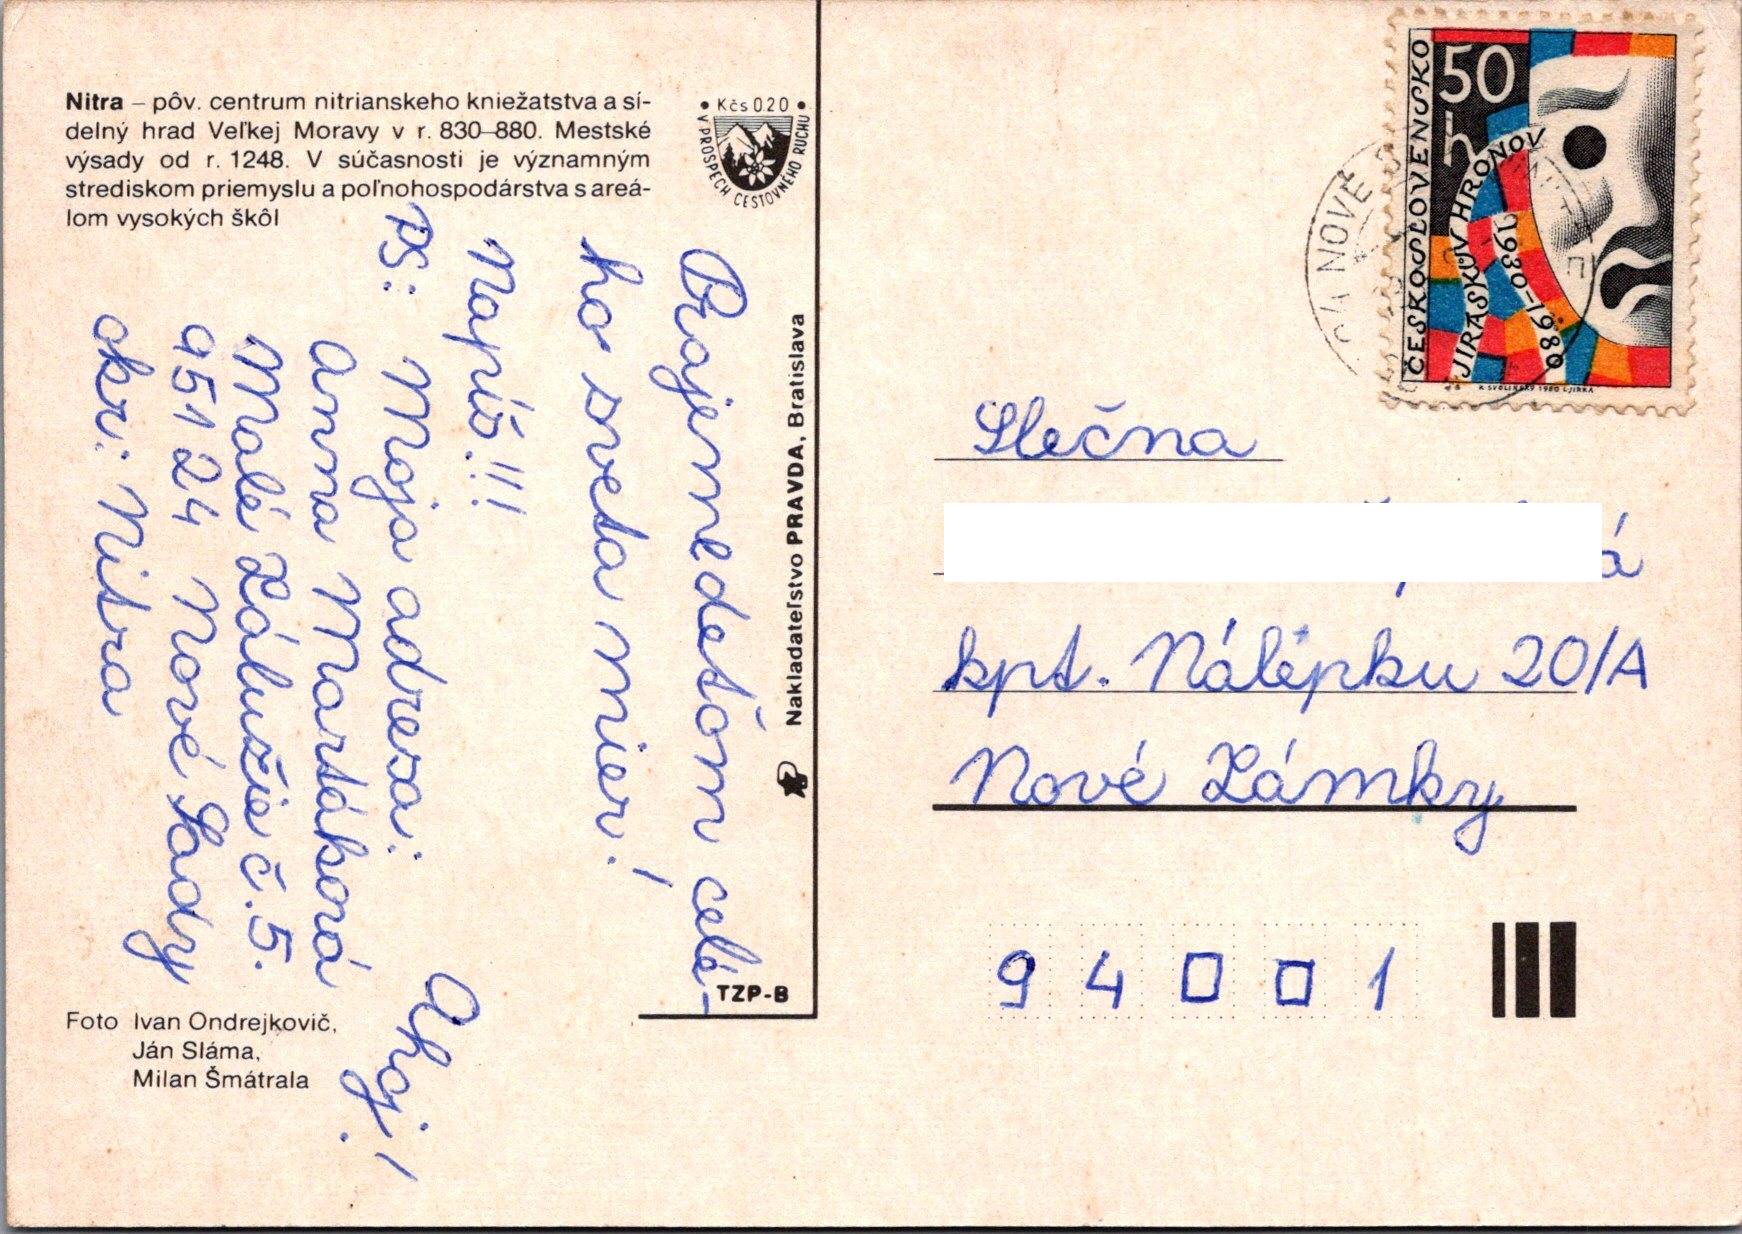 Nitra – pôv. centrum nitrianskeho kniežatstva a sí-
delný hrad Veľkej Moravy v r. 830–880. Mestské
výsady od r. 1248. V súčasnosti je významným
strediskom priemyslu a poľnohospodárstva s areá-
lom vysokých škôl
• Kčs 0.20 •
V PROSPECH CESTOVNÉHO RUCHU
Prajeme deťom celé-
ho sveta mier!
Napíš!!!
PS: Moja adresa:
Anna Martáková
Malé Zálužie č. 5.
951 24 Nové Sady
okr: Nitra
Ahoj!
Foto Ivan Ondrejkovič,
Ján Sláma,
Milan Šmátrala
Nakladateľstvo PRAVDA, Bratislava
TZP-B
ČESKOSLOVENSKO
50 h
JIRÁSKŮV HRONOV
1930–1980
K. SVOLINSKÝ 1980 L. JIRKA
NOVÉ
Slečna
á
kpt. Nálepku 20/A
Nové Zámky
940 01